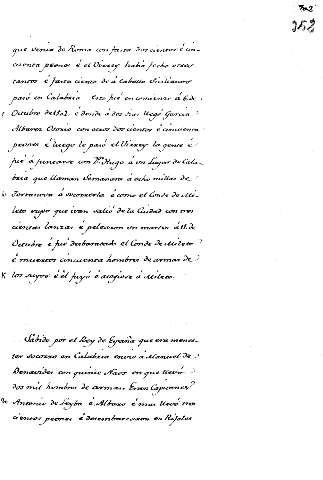 352
que venia de Roma con fasta doscientos é cin-
cuenta peones é el Virrey habia fecho otros
tantos é fasta ciento de á caballo Sicilianos
pasó en Calabria esto fué en comienzo á 6 de
Octubre de 1502 é dende á dos dias llegó Garcia
Alvarez Osorio con otros doscientos é cincuenta
peones é luego le pasó el Virrey la gente é
fué á juntarse con Dn Hugo á un Lugar de Cala-
bria que llaman Semanara á ocho millas de
Terranova á socorrerla é como el Conde de Mi-
leto supo que ivan salió de la Ciudad con tres
cientas lanzas é pelearon un martes á 11 de
Octubre é fué desbaratado el Conde de Mileto
é muertos cincuenta hombres de armas de
los suyos é él fuyó é acogiose á Mileto.
Sabido por el Rey de España que era menes-
ter socorro en Calabria envió á Manuel de
Benavides con quince Naos en que llevó
dos mil hombres de armas Eran Capitanes
Antonio de Leyba é Alvaro é mas llevó tres
cientos peones é desembarcaron en Rijoles